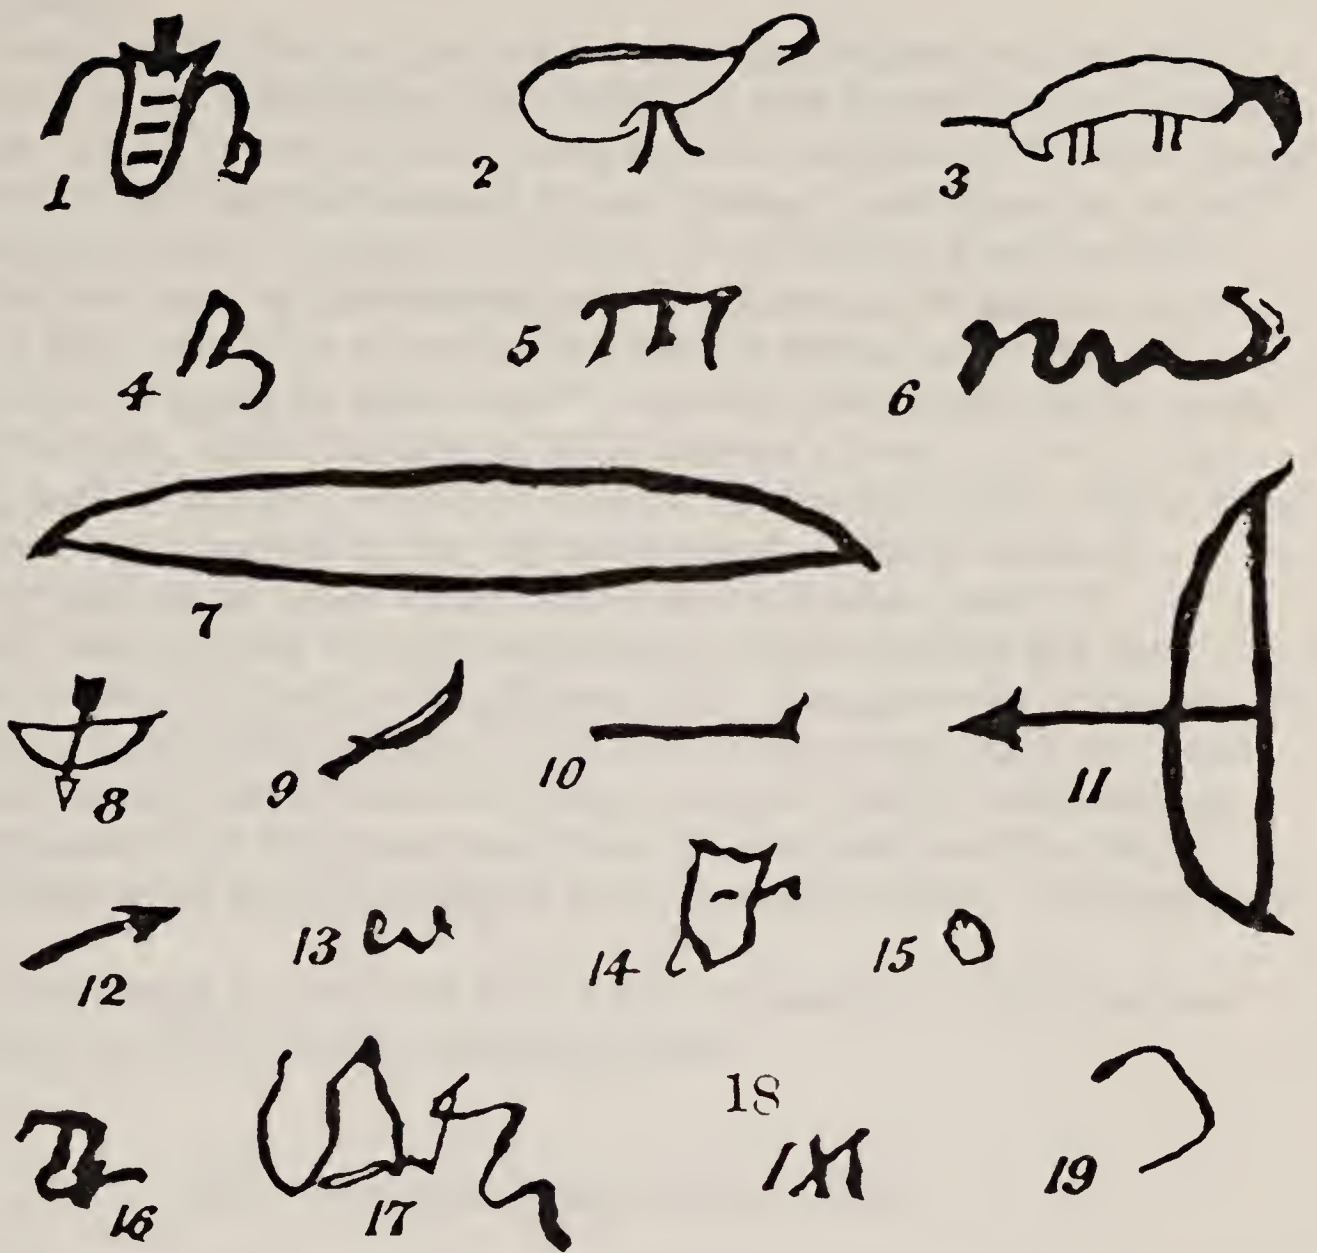 1 2 3
4 5 6
7
8 9 10 11
12 13 14 15
16 17 18 19